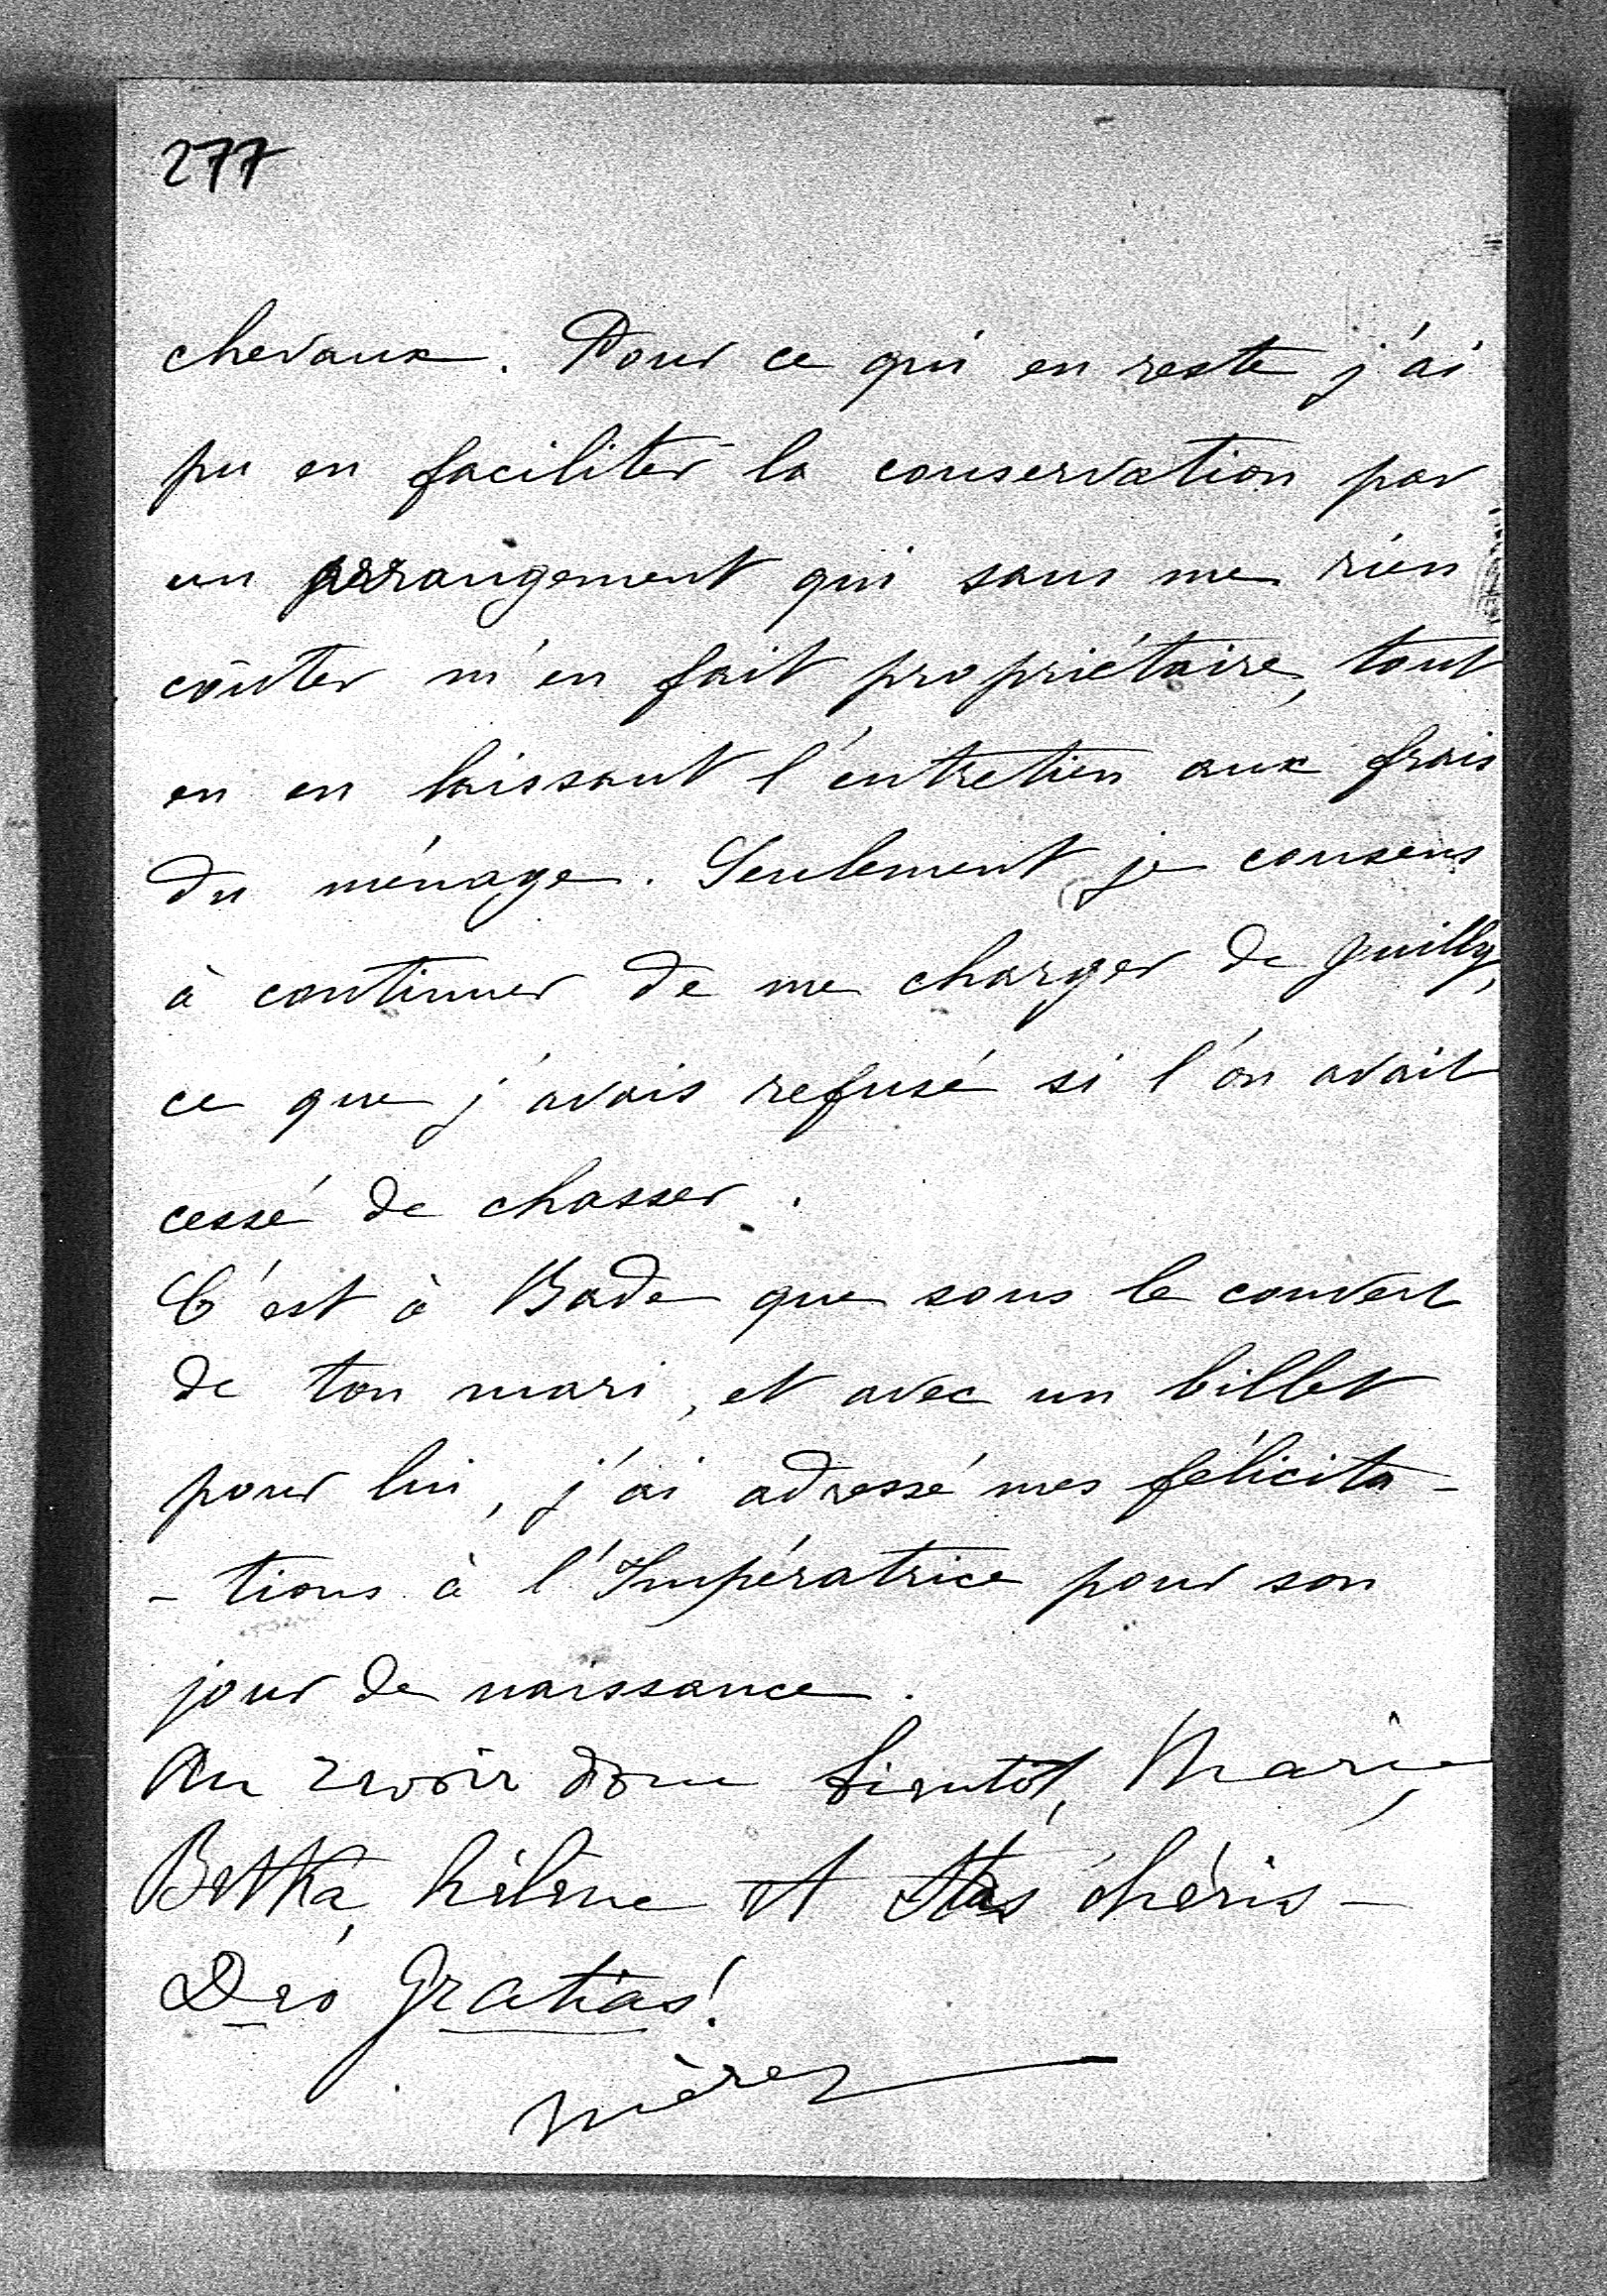 277
chevaux. Pour ce qui en reste j'ai
pu en faciliter la conservation par
un arrangement qui sans me rien
coûter m'en fait propriétaire, tout
en en laissant l'entretien aux frais
du ménage. Seulement je consens
à continuer de me charger de
ce que j'avais refusé si l'on avait
cessé de chasser.
C'est à Bade que sous le couvert
de ton mari, et avec un billet
pour lui, j'ai adressé mes félicita-
-tions à l'Impératrice pour son
jour de naissance.
Au revoir donc bientôt, Marie,
Betka, hélène et Stas chéris —
Deo Gratias!
mère